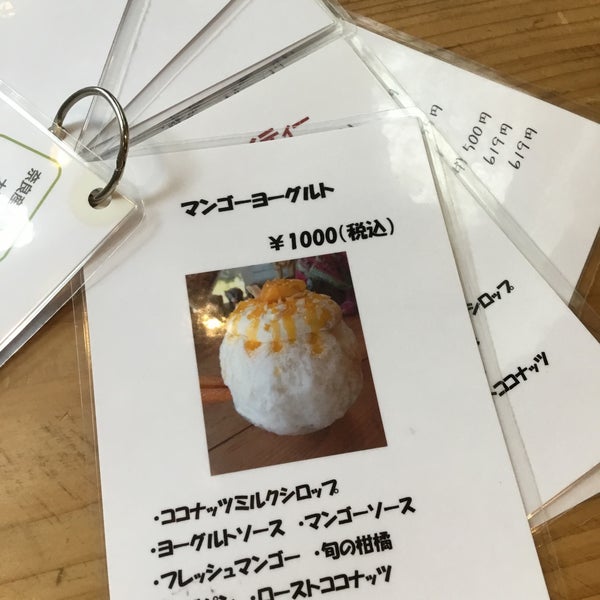 マンゴーヨーグルト
￥1000(税込)
・ココナッツミルクシロップ
・ヨーグルトソース ・マンゴーソース
・フレッシュマンゴー ・旬の柑橘
・ローストココナッツ
500円
619円
619円
シロップ
ストココナッツ
奈良産